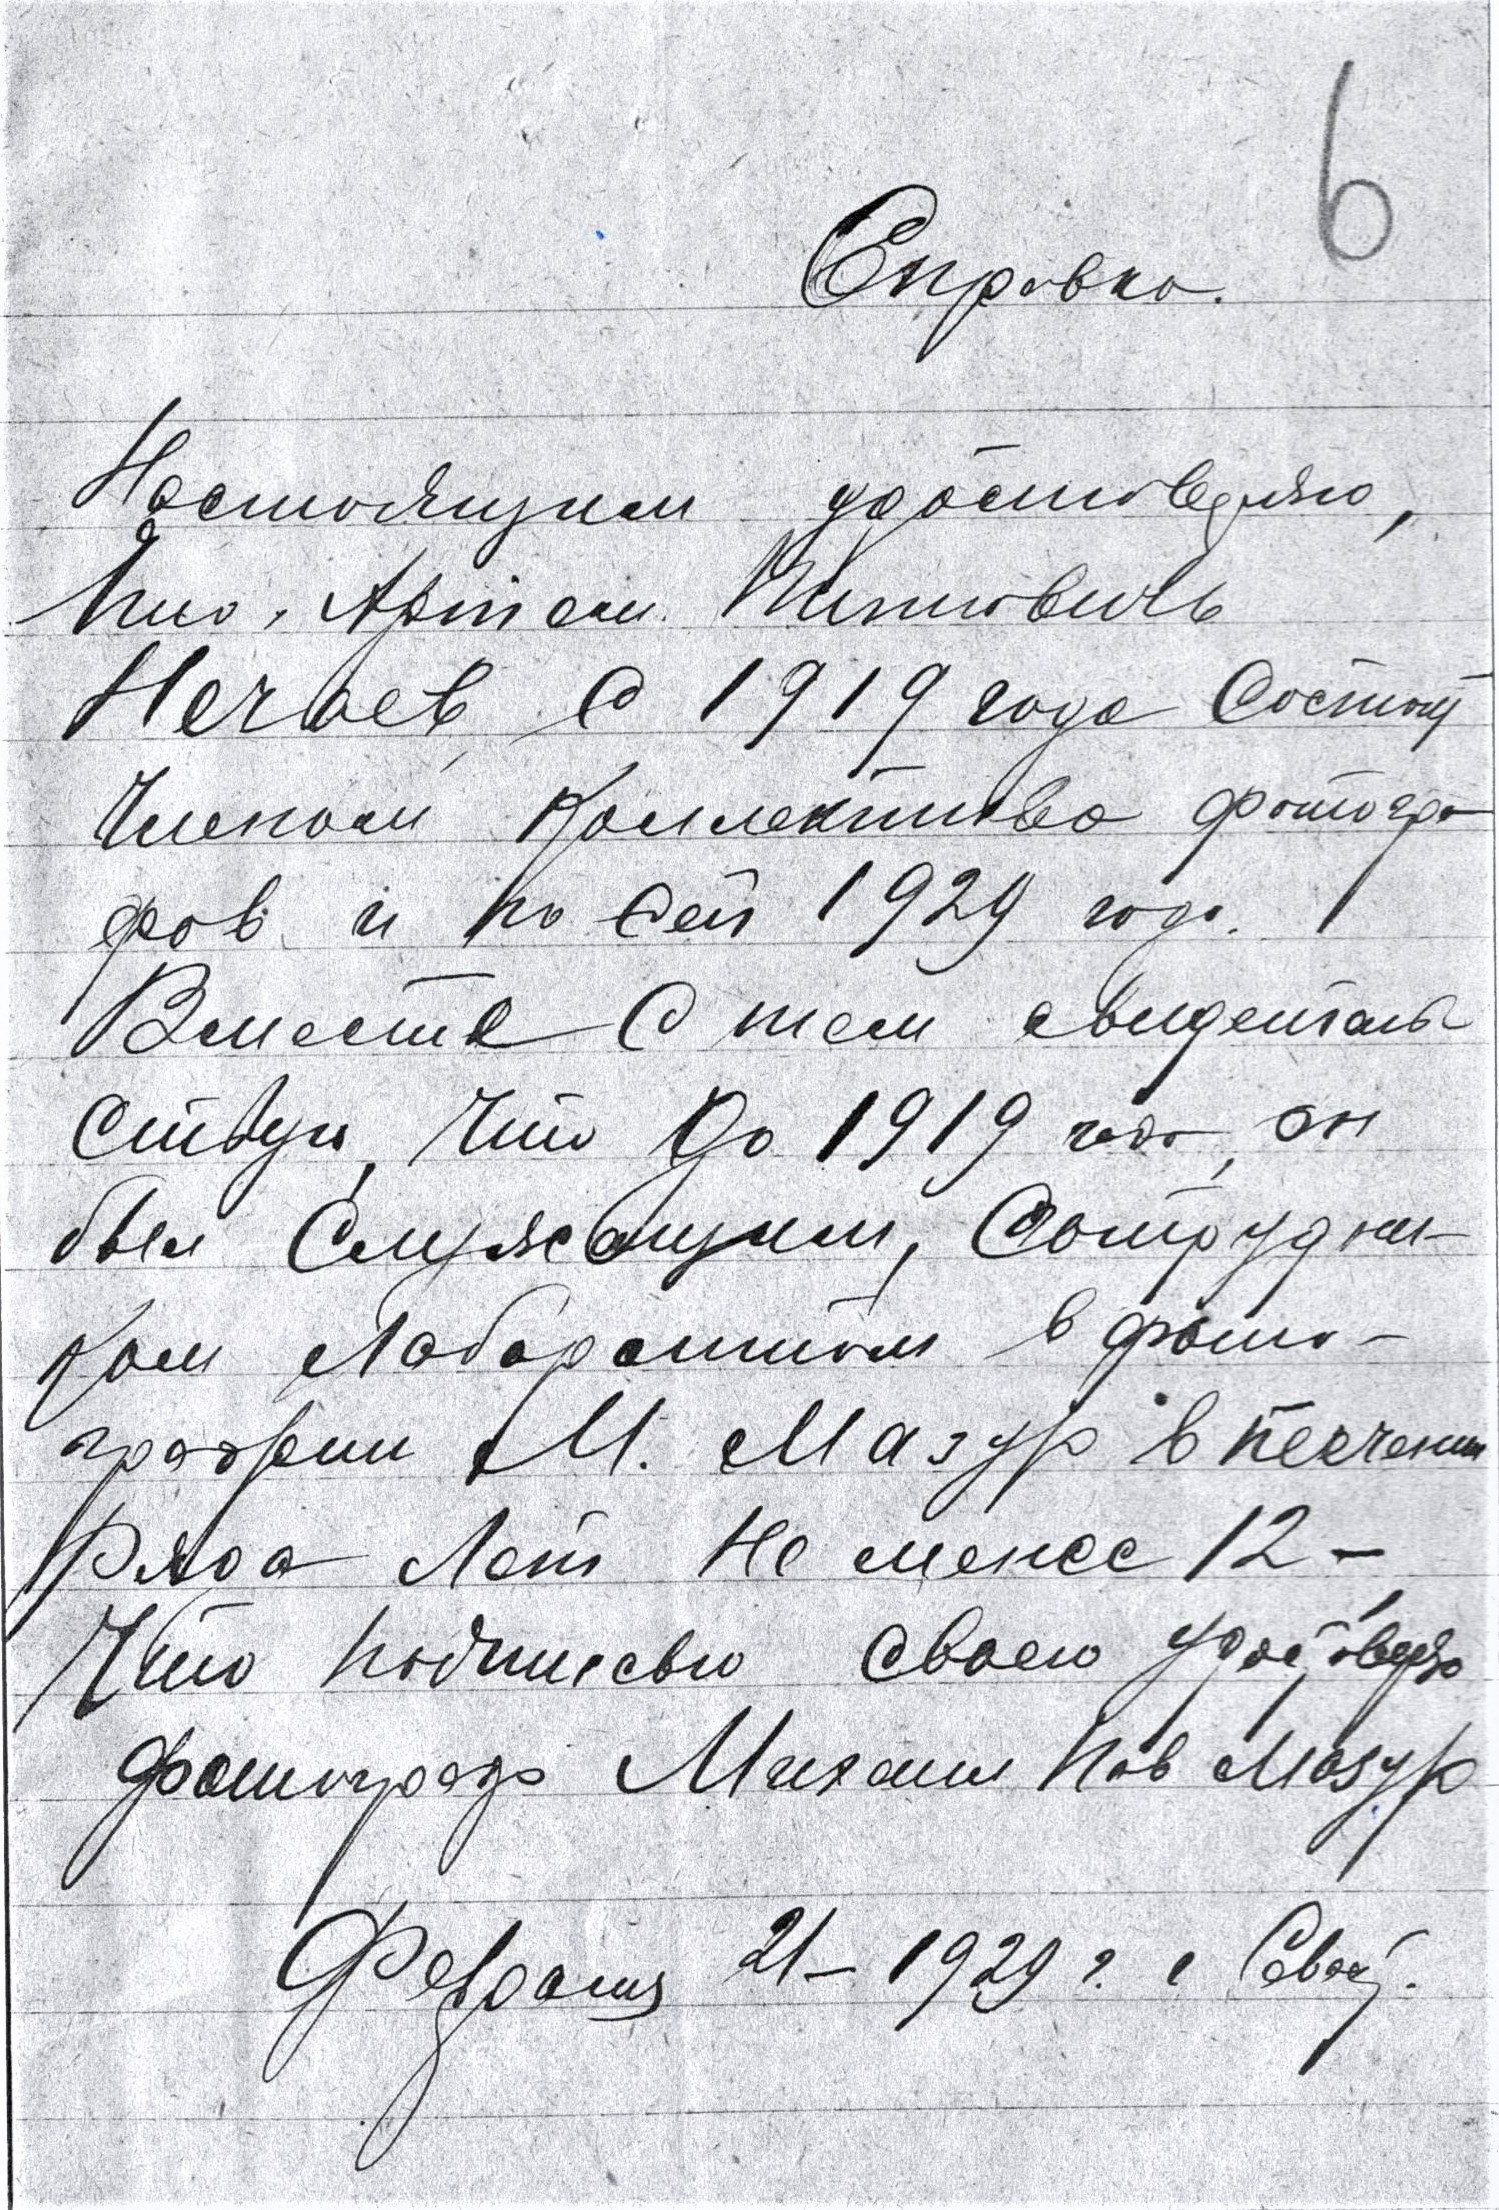 6
Справка.
Настоящим удостоверяю,
что, Артем. Титович
Нечаев с 1919 года состоит
членом коллектива фотогра
фов и по сей 1929 года.
Вместе с тем свидетель
ствую, что до 1919 года, он
был служащим, сотрудни-
ком лаборантом в фото-
графии М. Мазур в течении
ряда лет не менее 12 -
что подписью своею удостоверяю
фотограф Михаил Пав Мазур
Февраля 21 - 1929 г.